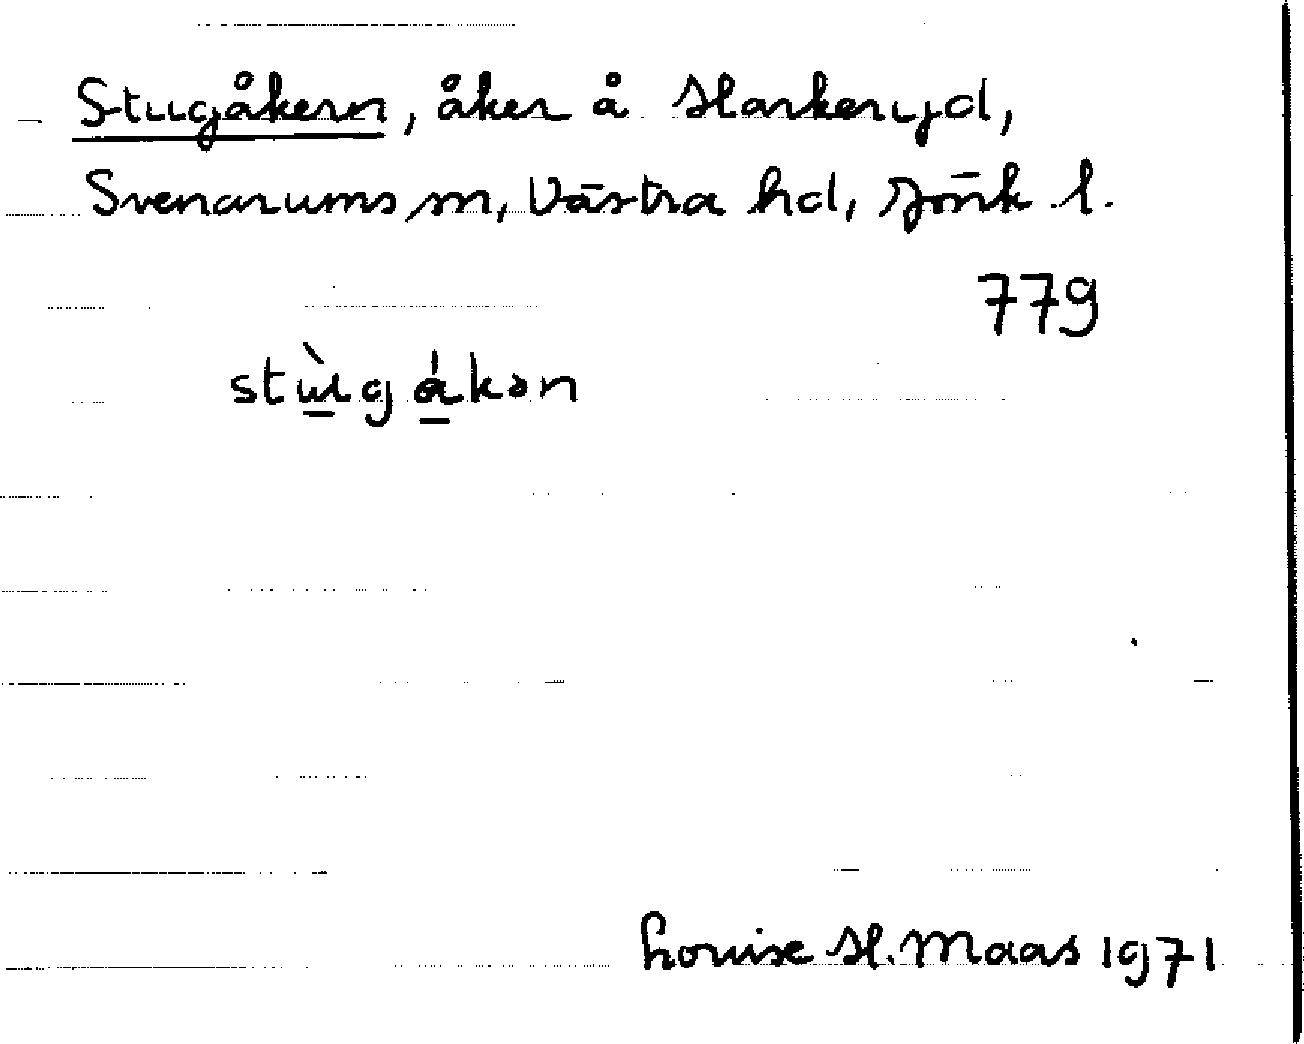 Stugåkern, åker å Harkeryd,
Svenarums sn, Västra hd, Jönk l.
779
stùgákən
Louise H. Maas 1971